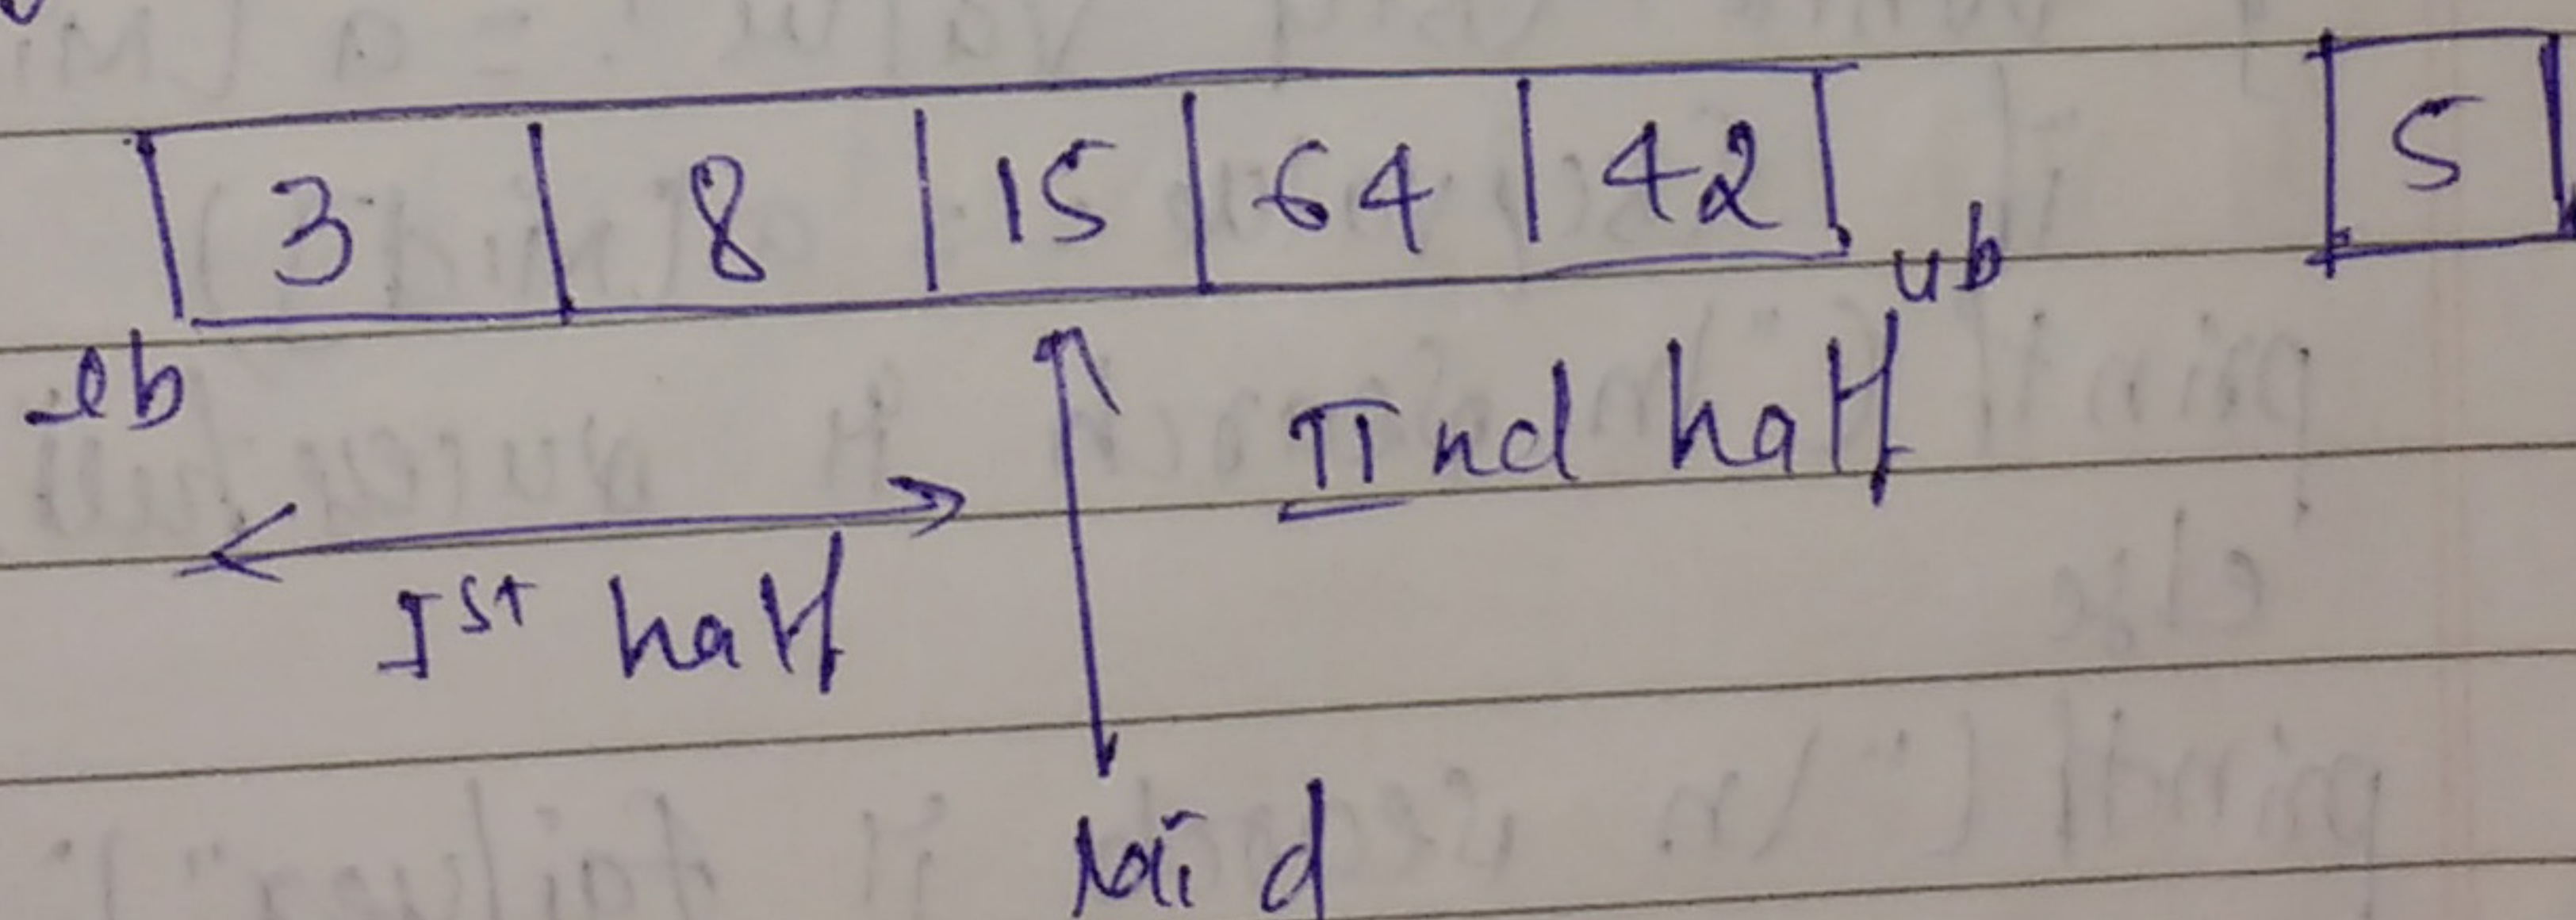 3 8 15 64 42 5
lb ub
IInd half
Ist half
Mid